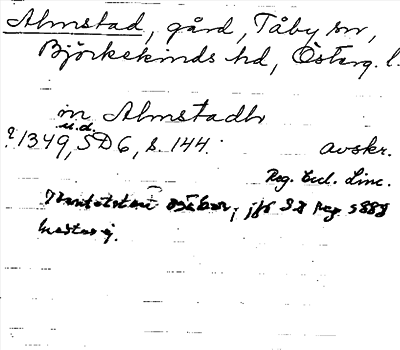 Almstad, gård, Tåby sn,
Björkekinds hd, Österg. l.
in Almstadh
u.d.
? 1349, SD 6, s. 144. avskr.
Reg. Eccl. Linc.
jfr SD Reg s 888